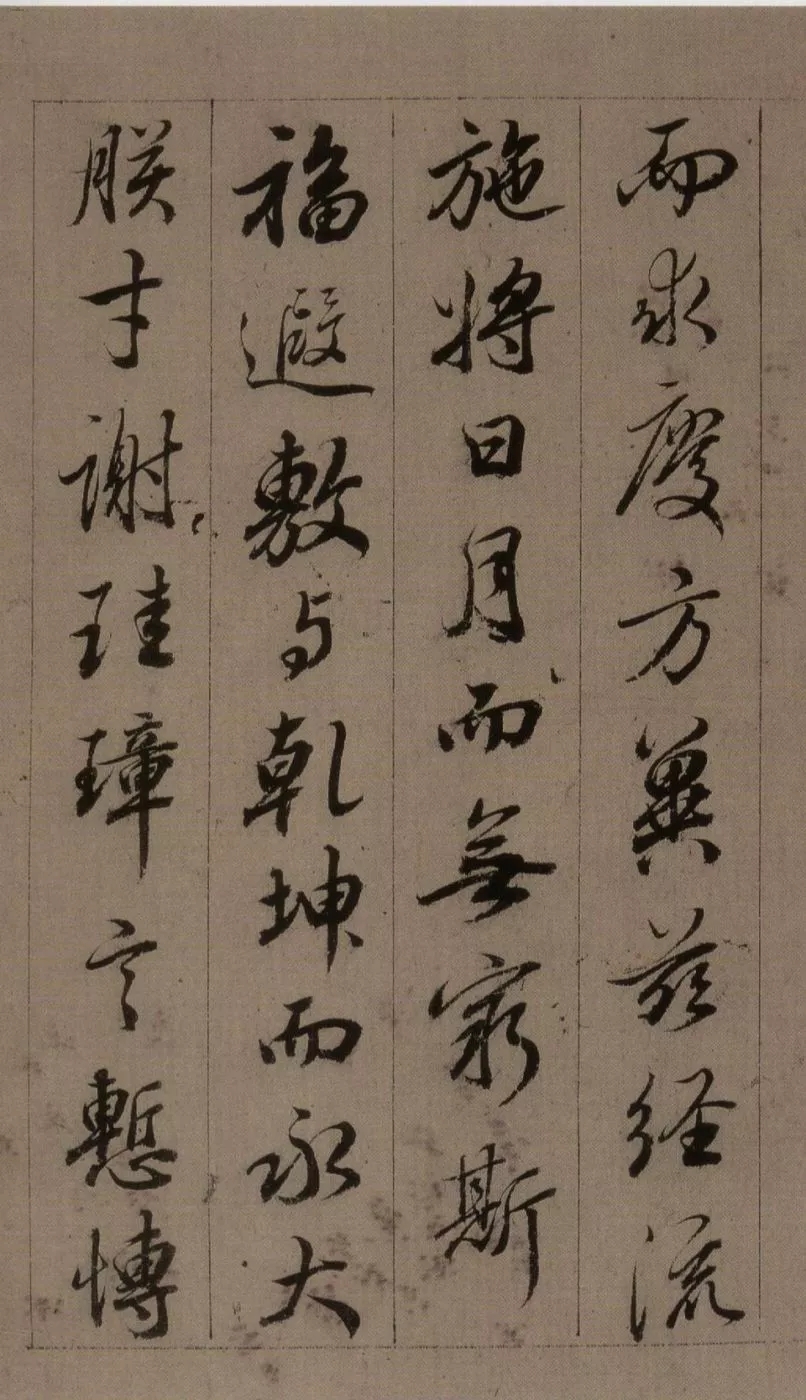 而求慶方冀茲経流
施將日月而無窮斯
福遐敷与乾坤而永大
朕才謝珪璋言慙博